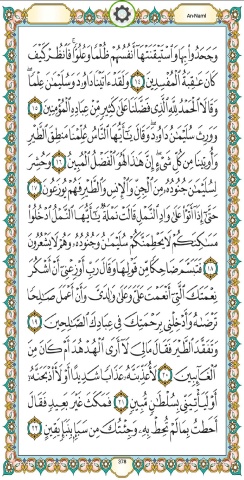 An-Naml
وَجَحَدُوا۟ بِهَا وَٱسْتَيْقَنَتْهَآ أَنفُسُهُمْ ظُلْمًا وَعُلُوًّا ۚ فَٱنظُرْ كَيْفَ
كَانَ عَٰقِبَةُ ٱلْمُفْسِدِينَ ١٤ وَلَقَدْ ءَاتَيْنَا دَاوُۥدَ وَسُلَيْمَٰنَ عِلْمًا ۖ
وَقَالَا ٱلْحَمْدُ لِلَّهِ ٱلَّذِى فَضَّلَنَا عَلَىٰ كَثِيرٍ مِّنْ عِبَادِهِ ٱلْمُؤْمِنِينَ ١٥
وَوَرِثَ سُلَيْمَٰنُ دَاوُۥدَ ۖ وَقَالَ يَٰٓأَيُّهَا ٱلنَّاسُ عُلِّمْنَا مَنطِقَ ٱلطَّيْرِ
وَأُوتِينَا مِن كُلِّ شَىْءٍ ۖ إِنَّ هَٰذَا لَهُوَ ٱلْفَضْلُ ٱلْمُبِينُ ١٦ وَحُشِرَ
لِسُلَيْمَٰنَ جُنُودُهُۥ مِنَ ٱلْجِنِّ وَٱلْإِنسِ وَٱلطَّيْرِ فَهُمْ يُوزَعُونَ ١٧
حَتَّىٰٓ إِذَآ أَتَوْا۟ عَلَىٰ وَادِ ٱلنَّمْلِ قَالَتْ نَمْلَةٌ يَٰٓأَيُّهَا ٱلنَّمْلُ ٱدْخُلُوا۟
مَسَٰكِنَكُمْ لَا يَحْطِمَنَّكُمْ سُلَيْمَٰنُ وَجُنُودُهُۥ وَهُمْ لَا يَشْعُرُونَ
١٨ فَتَبَسَّمَ ضَاحِكًا مِّن قَوْلِهَا وَقَالَ رَبِّ أَوْزِعْنِىٓ أَنْ أَشْكُرَ
نِعْمَتَكَ ٱلَّتِىٓ أَنْعَمْتَ عَلَىَّ وَعَلَىٰ وَٰلِدَىَّ وَأَنْ أَعْمَلَ صَٰلِحًا
تَرْضَىٰهُ وَأَدْخِلْنِى بِرَحْمَتِكَ فِى عِبَادِكَ ٱلصَّٰلِحِينَ ١٩
وَتَفَقَّدَ ٱلطَّيْرَ فَقَالَ مَا لِىَ لَآ أَرَى ٱلْهُدْهُدَ أَمْ كَانَ مِنَ
ٱلْغَآئِبِينَ ٢٠ لَأُعَذِّبَنَّهُۥ عَذَابًا شَدِيدًا أَوْ لَأَا۟ذْبَحَنَّهُۥٓ
أَوْ لَيَأْتِيَنِّى بِسُلْطَٰنٍ مُّبِينٍ ٢١ فَمَكَثَ غَيْرَ بَعِيدٍ فَقَالَ
أَحَطتُ بِمَا لَمْ تُحِطْ بِهِۦ وَجِئْتُكَ مِن سَبَإٍۭ بِنَبَإٍ يَقِينٍ ٢٢
378